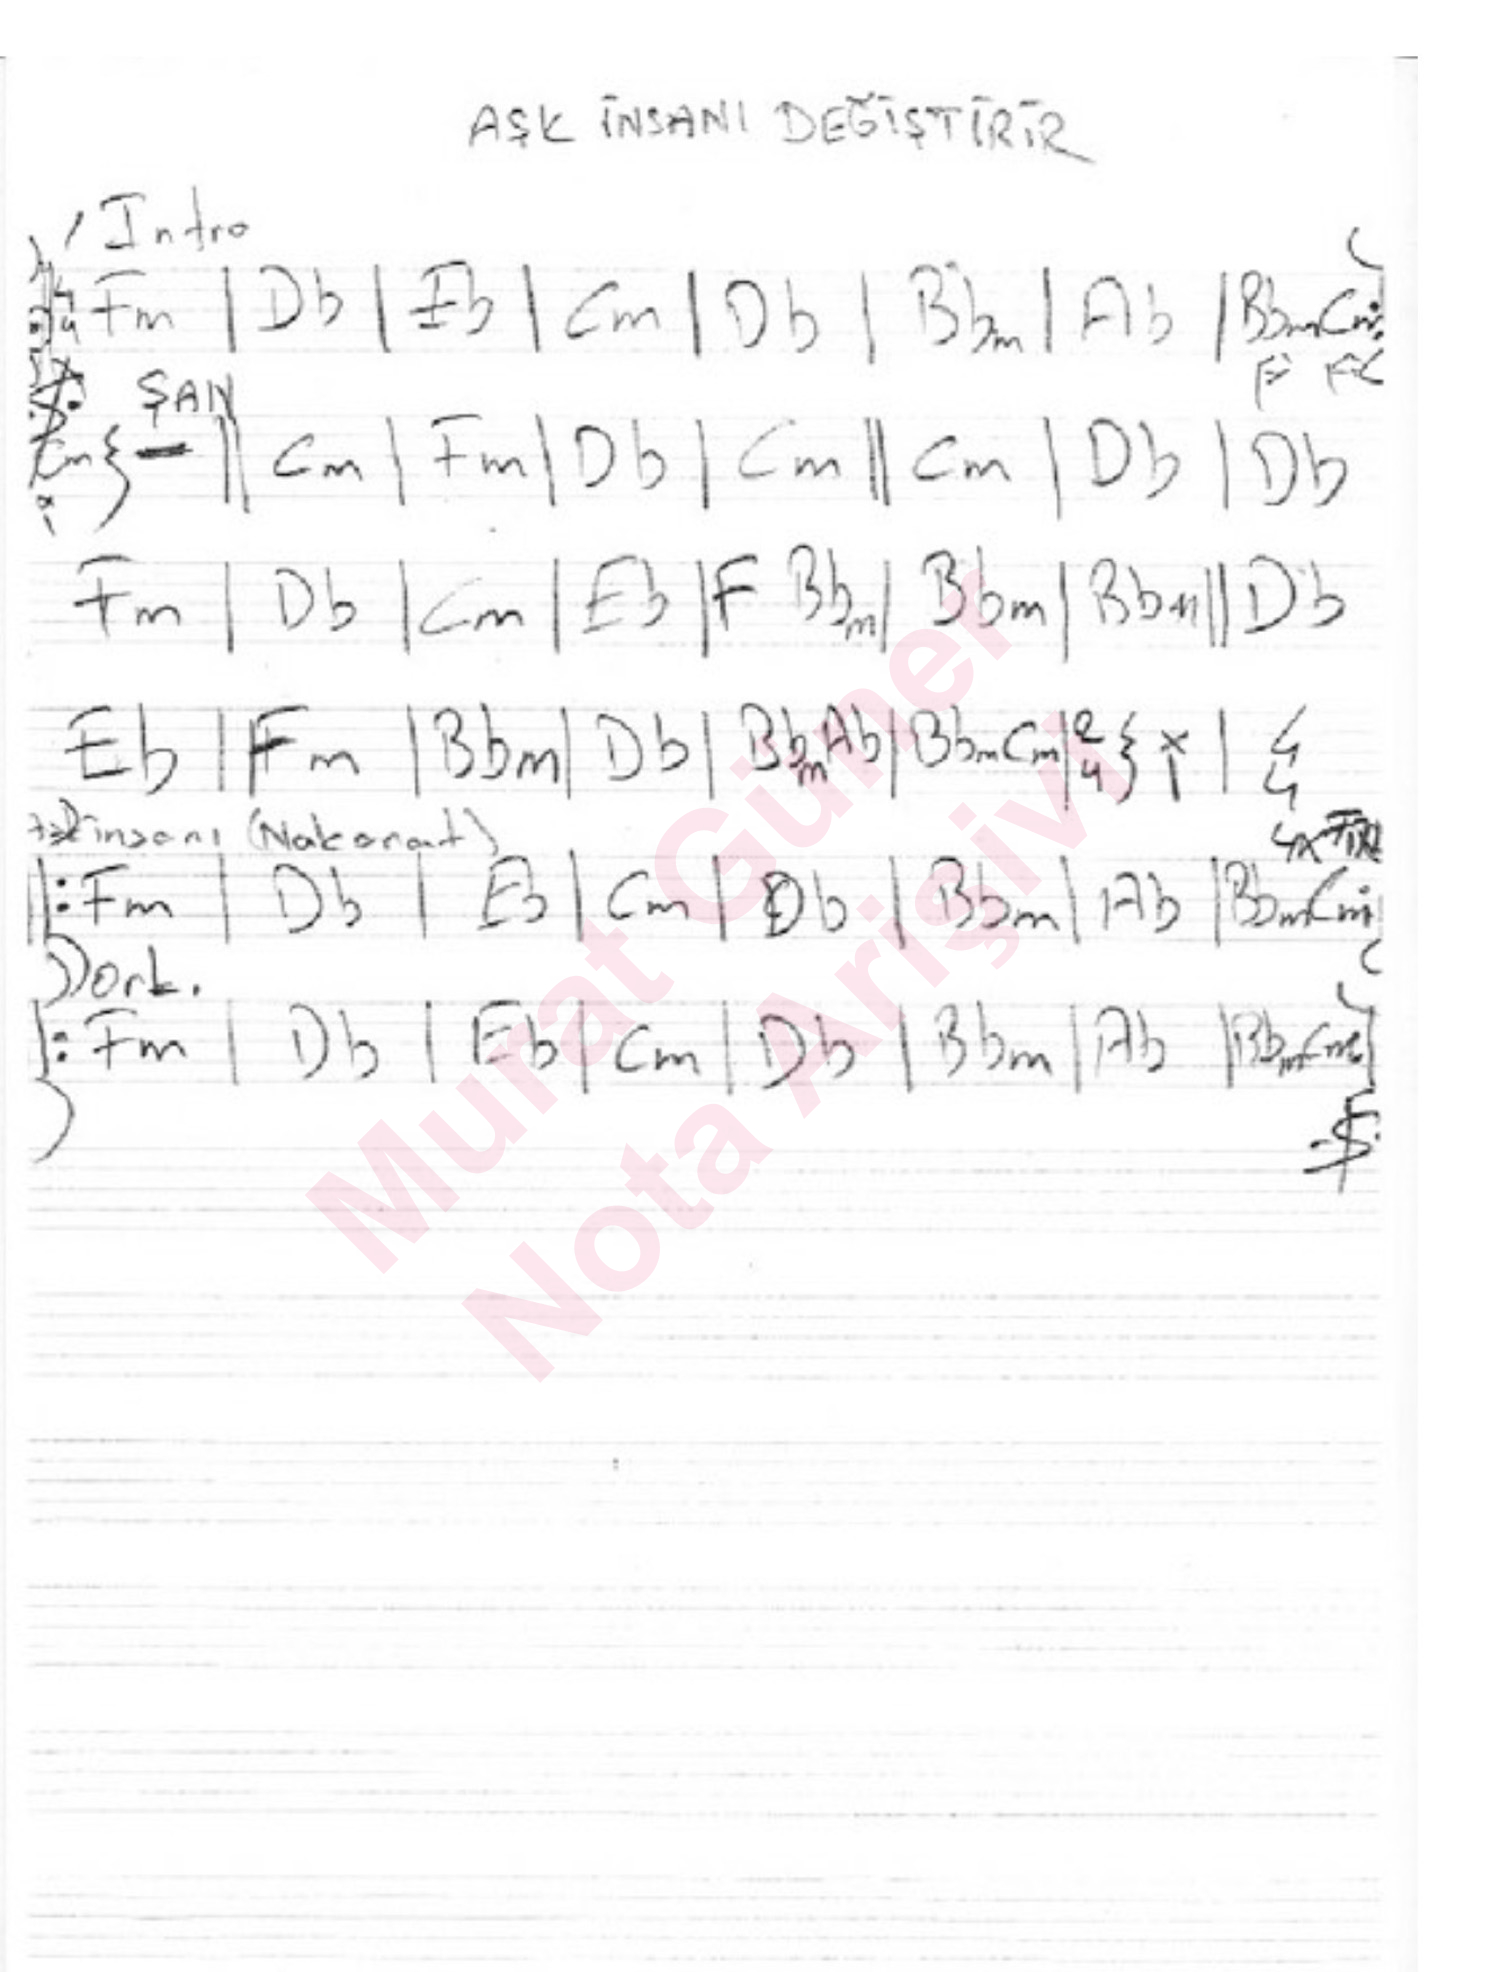 AŞK İNSANI DEĞİŞTİRİR
Intro
4/4 Fm | Db | Eb | Cm | Db | Bbm | Ab | Bbm Cm :
ŞAN
Cm } – || Cm | Fm | Db | Cm || Cm | Db | Db
Fm | Db | Cm | Eb | F Bbm | Bbm | Bbm || Db
Eb | Fm | Bbm | Db | Bbm Ab | Bbm Cm | 2/4 } x | 4/4
insanı (Nakarat) 4x
|: Fm | Db | Eb | Cm | Db | Bbm | Ab | Bbm Cm :
ork.
|: Fm | Db | Eb | Cm | Db | Bbm | Ab | Bbm Cm :
Murat Güner
Nota Arişivi